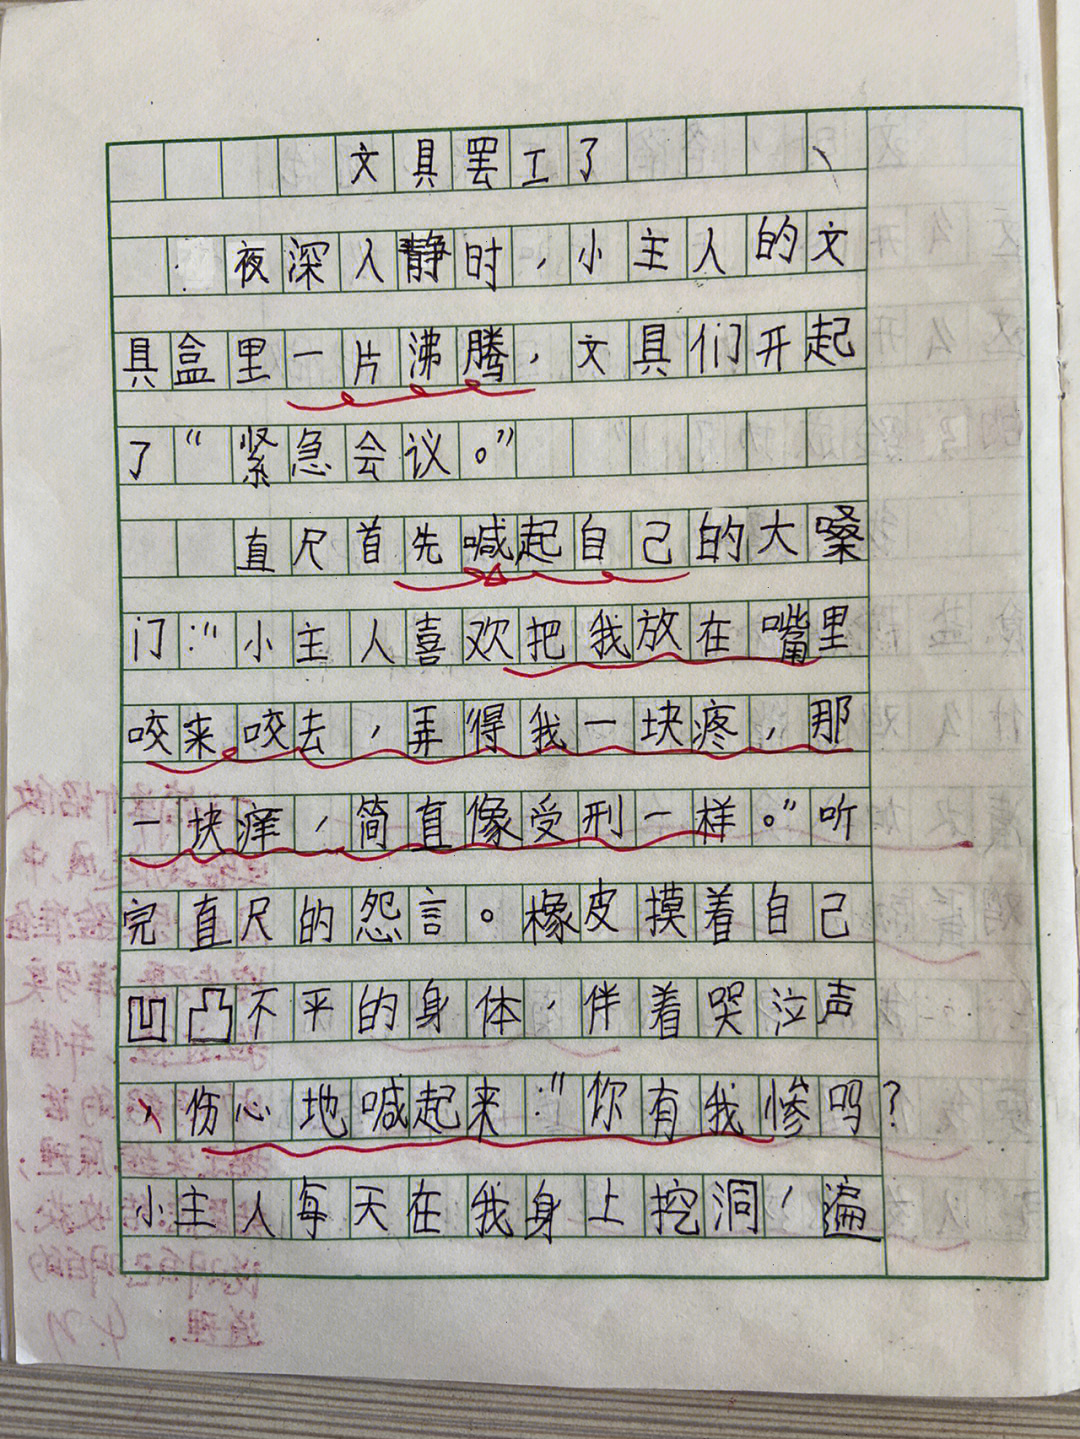 文具罢工了
夜深人静时，小主人的文
具盒里一片沸腾，文具们开起
了“紧急会议。”
直尺首先喊起自己的大嗓
门：“小主人喜欢把我放在嘴里
咬来咬去，弄得我一块疼，那
一块痒，简直像受刑一样。”听
完直尺的怨言。橡皮摸着自己
凹凸不平的身体，伴着哭泣声
，伤心地喊起来：“你有我惨吗？
小主人每天在我身上挖洞，遍